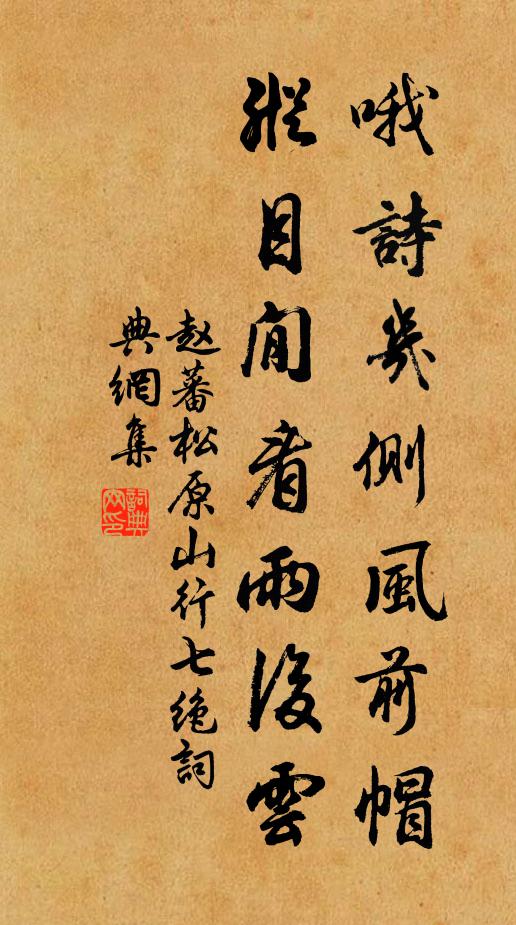 哦詩幾側風前帽
縱目閒看雨後雲
赵蕃松原山行七绝詞
典網集
詞典网印